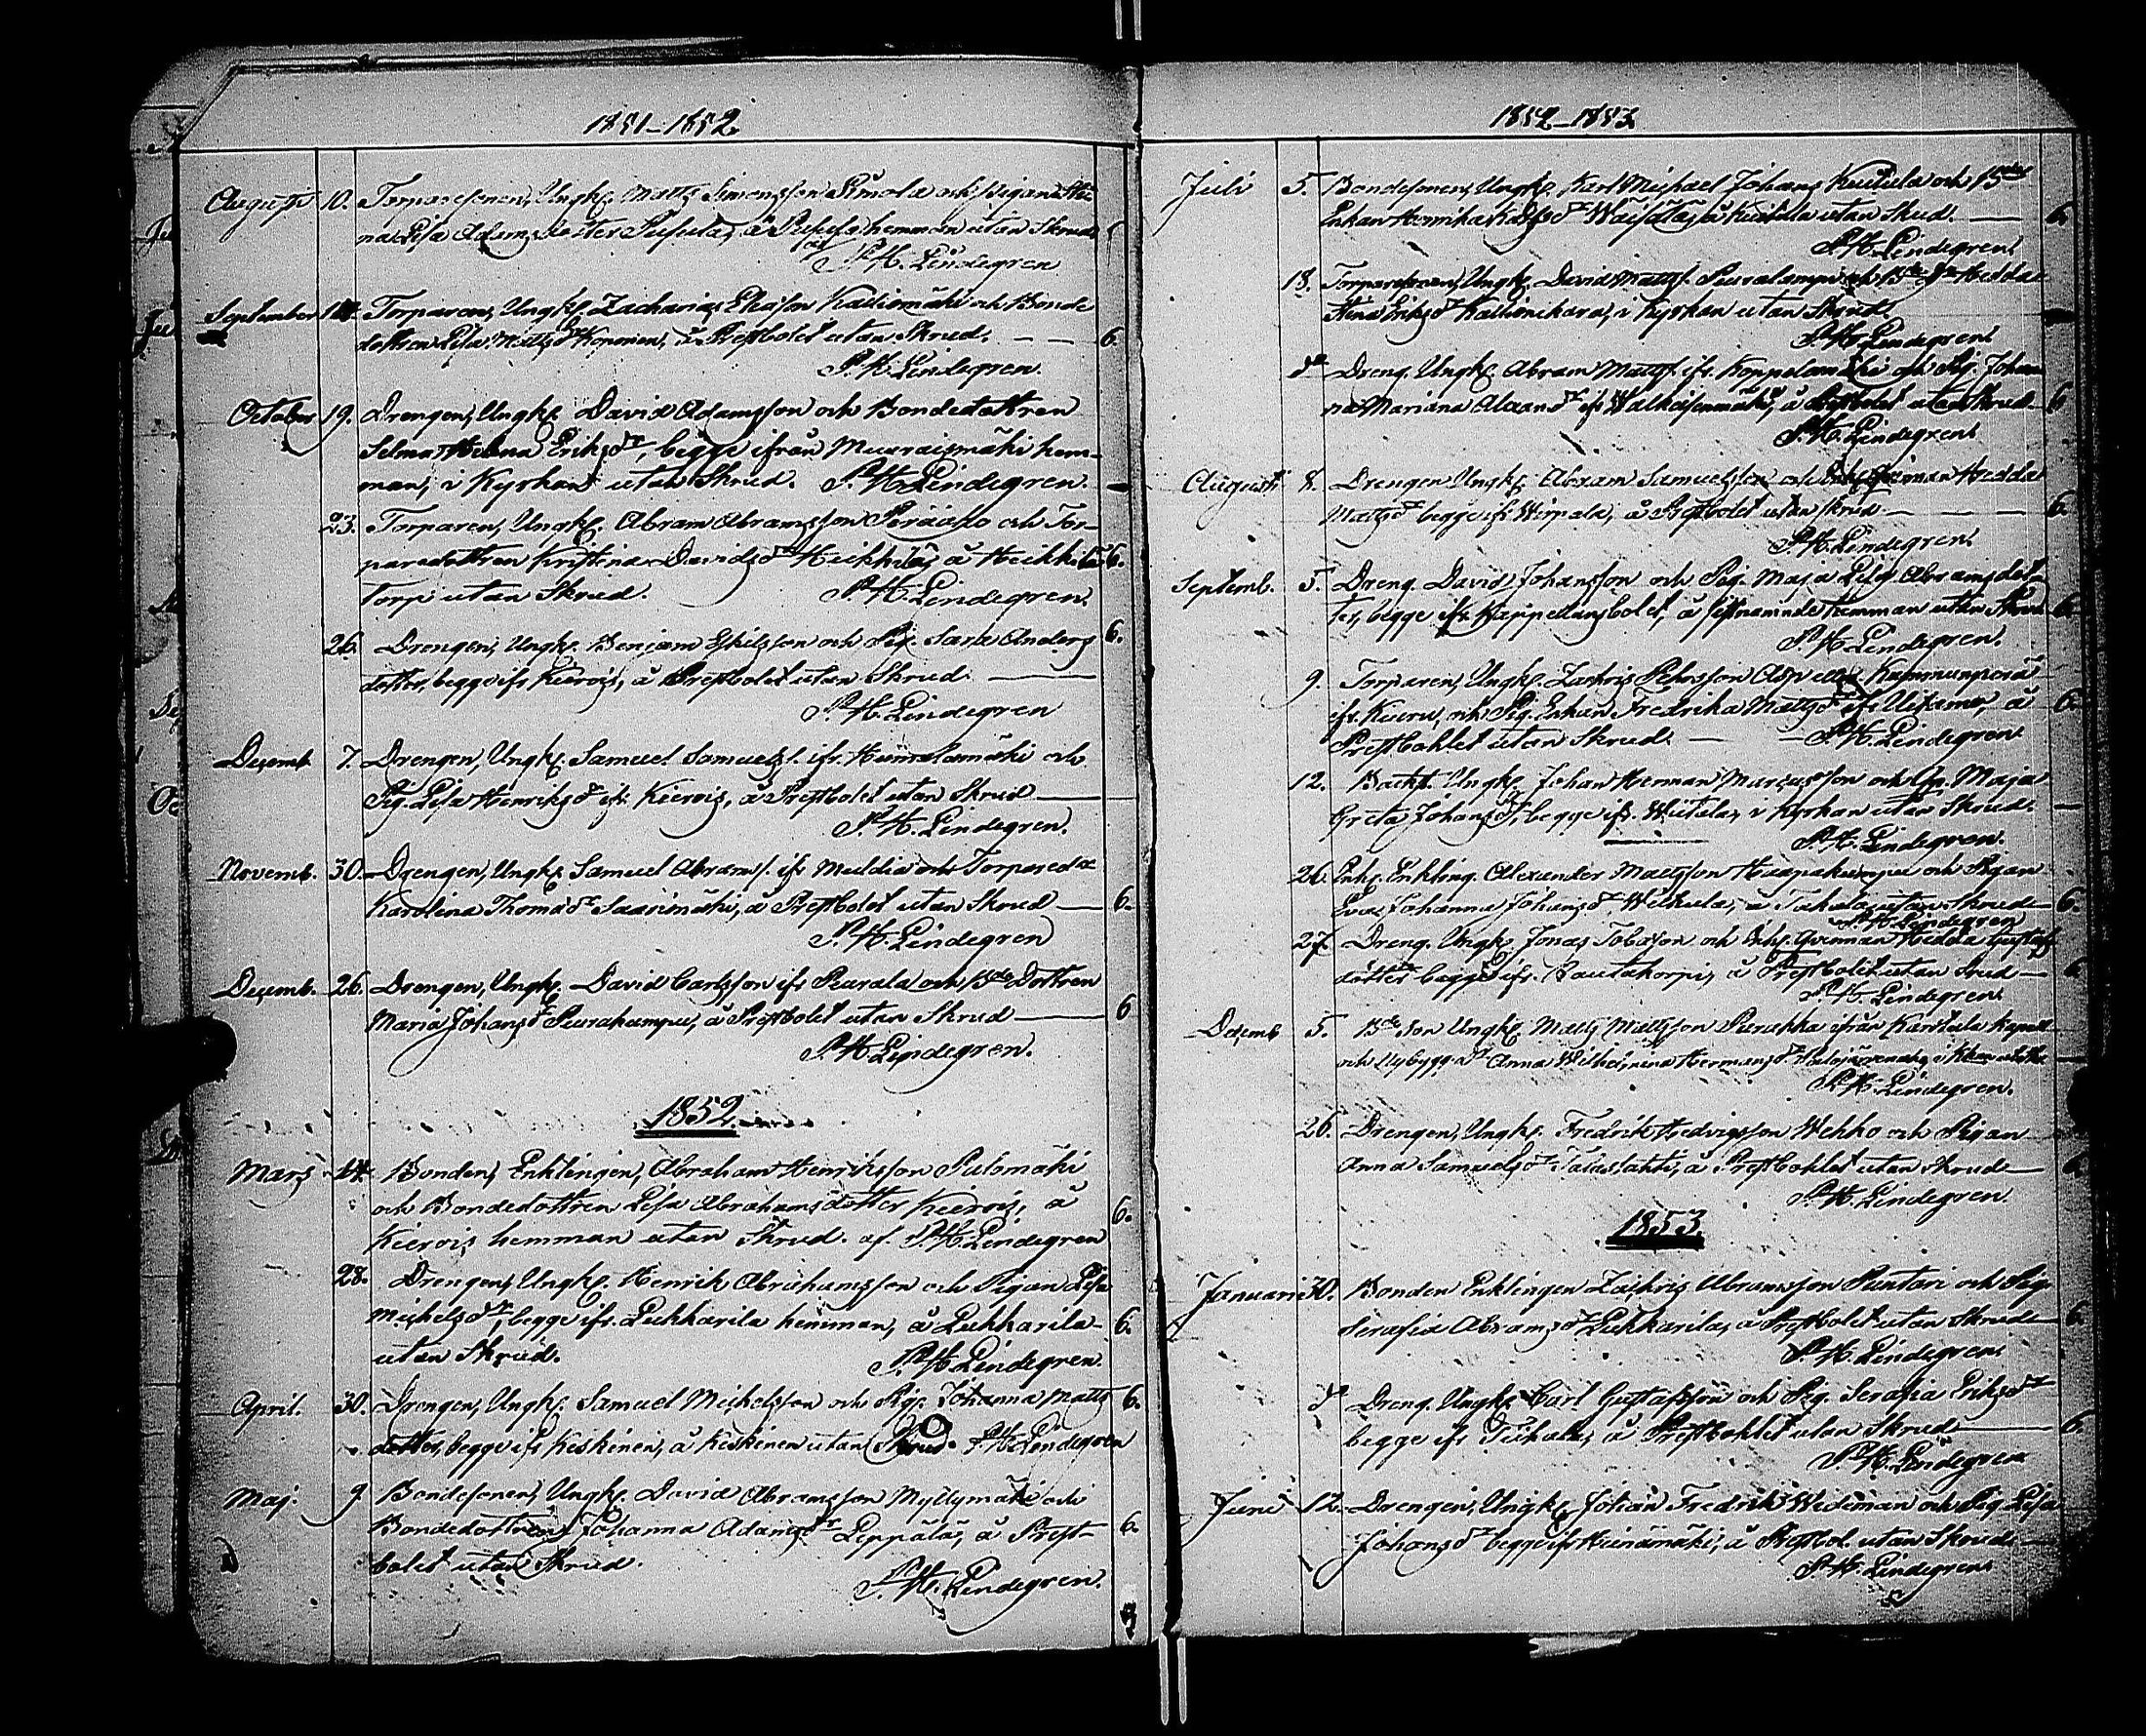 1851–1852.
Augusti 10. Torparesonen, Ungk. Matts Simonsson och Pigan
Lisa Adams Dotter hemman utan Skrud
af P. H. Lindegren
September 14. Torparen, Ungk. Zacharias Eliasson Kalliomäki och Bonde
dottren Lisa Mattsdr Koponen, å Prestbolet utan Skrud. — — 6.
P. H. Lindegren
October 19. Drengen, Ungk. David Adamsson och Bondedottren
Selma Helena Eriksdr, begge ifrån Muuraismäki hem-
man, i Kyrkan utan Skrud. P. H. Lindegren. —
23. Torparen, Ungk. Abram Abramsson Perääho och Tor-
paredottren Kristina Davidsdr Heikkilä, å Heikkilä 6.
Torp utan Skrud. P. H. Lindegren.
26. Drengen, Ungk. Benjam Eskilsson och Pig. Sara Anders 6.
dotter, begge ifr. Kierois, å Prestbolet utan Skrud —
P. H. Lindegren
Decemb. 7. Drengen, Ungk. Samuel Samuelss. ifr. och
Pig. Lisa Henriksdr ifr. Kierois, å Prestbolet utan Skrud —
P. H. Lindegren.
Novemb. 30. Drengen, Ungk. Samuel Abrams. ifr och Torpareda
Karolina Thomsdr Saarimäki, å Prestbolet utan Skrud — 6.
P. H. Lindegren
Decemb. 26. Drengen, Ungk. David Carlsson ifr Peurala och Bde Dottren
Maria Johansdr Peurakumpu, å Prestbolet utan Skrud — 6
P. H. Lindegren.
1852.
Mars 14. Bonden, Enklingen, Abraham Henriksson Pulomäki
och Bondedottren Lisa Abrahamsdotter Kierois, å 6.
Kierois hemman utan Skrud. af P. H. Lindegren
28. Drengen, Ungk. Henrik Abrahamsson och Pigan Lisa
Michelsdr, begge ifr. Lukkarila hemman, å Lukkarila 6.
utan Skrud. P. H. Lindegren.
April. 30. Drengen, Ungk. Samuel Michelsson och Pig. Johanna Matts 6.
dotter, begge ifr Keskinen, å Keskinen utan Skrud. P. H. Lindegren
Maj. 9. Bondesonen, Ungk. David Abramsson Myllymäki och
Bondedottren Johanna Adamsdr Leppälä, å Prest- 6.
bolet utan Skrud. P. H. Lindegren.
1852–1853.
Juli 5. Bondesonen, Ungk. Karl Michael Johans Kuitula och Bonde
Enkan Henrika Wäisälä, å Kuitula utan Skrud. — 6.
P. H. Lindegren.
18. Torparesonen, Ungk. David Mattss. Peuralampi och Bde dr Hedda
Stina Eriksdr i Kyrkan utan Skrud.
P. H. Lindegren.
do Dreng. Ungk. Abram Mattss. ifr. Koppelomäki och Pig. Johan
na Mariana ifr å Prestbolet utan Skrud 6
P. H. Lindegren.
Augusti 8. Drengen Ungk. Abram Samuelsson och Hedda
Mattsdr begge ifr Wirpala, å Prestbolet utan Skrud — — 6.
P. H. Lindegren.
Septemb. 5. Dreng. David Johansson och Pig. Maja Lisa Abramsdot-
ter, begge ifr. Kappelansbolet, å sistnamnde hemman utan Skrud 6.
P. H. Lindegren.
9. Torparen, Ungk. Zachris Pehrsson Asp
ifr. Kuieru, och Pig. Enkan Fredrika Mattsdr ifr Uitamo, å 6.
Prestbohlet utan Skrud. — — P. H. Lindegren
12. Ungk. Johan Herman Marcusson och Maja
Greta Johansdr, begge ifr. Wiitala, i Kyrkan utan Skrud. —
P. H. Lindegren.
26. Enkl. Enkling. Alexander Mattsson Haapakumpu och Pigan
Eva Johanna Johansdr Wilkula, å utan Skrud 6.
P. H. Lindegren
27. Dreng. Ungk. Jonas Tobason och Hedda Gustafs
dotter begge ifr. Rautakorpi, å Prestbolet utan Skrud — 6
P. H. Lindegren.
Decemb 5. Bde Son Ungk. Matts Mattsson ifrån Karstula kapell
och Nybygg. dr Anna Wilhelmina Hermansdr —
P. H. Lindegren.
26. Drengen, Ungk. Fredrik Hedvigsson Wehko och Pigan
Anna Samuelsdr å Prestbohlet utan Skrud — 6
P. H. Lindegren
1853.
Januari 30. Bonden Enklingen Zachris Abramsson Puntari och Pig.
Serafia Abramsdr Lukkarila, å Prestbolet utan Skrud — 6.
P. H. Lindegren.
do Dreng. Ungk. Carl Gustafsson och Pig. Serafia Eriksdr
begge ifr å Prestbohlet utan Skrud — 6.
P. H. Lindegren
Juni 12. Drengen, Ungk. Johan Fredrik Wideman och Pig. Lisa
Johansdr begge ifr Heinämäki, å Prestbol. utan Skrud. —
P. H. Lindegren.